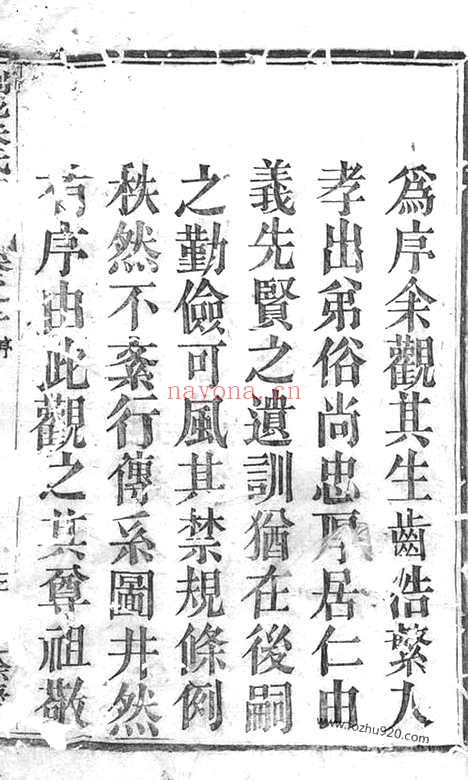 爲序余觀其生齒浩繁人
孝出弟俗尚忠厚居仁由
義先賢之遺訓猶在後嗣
之勤儉可風其禁規條例
秩然不紊行傳系圖井然
有序由此觀之其尊祖敬
nayona.cn
www.fozhu920.com